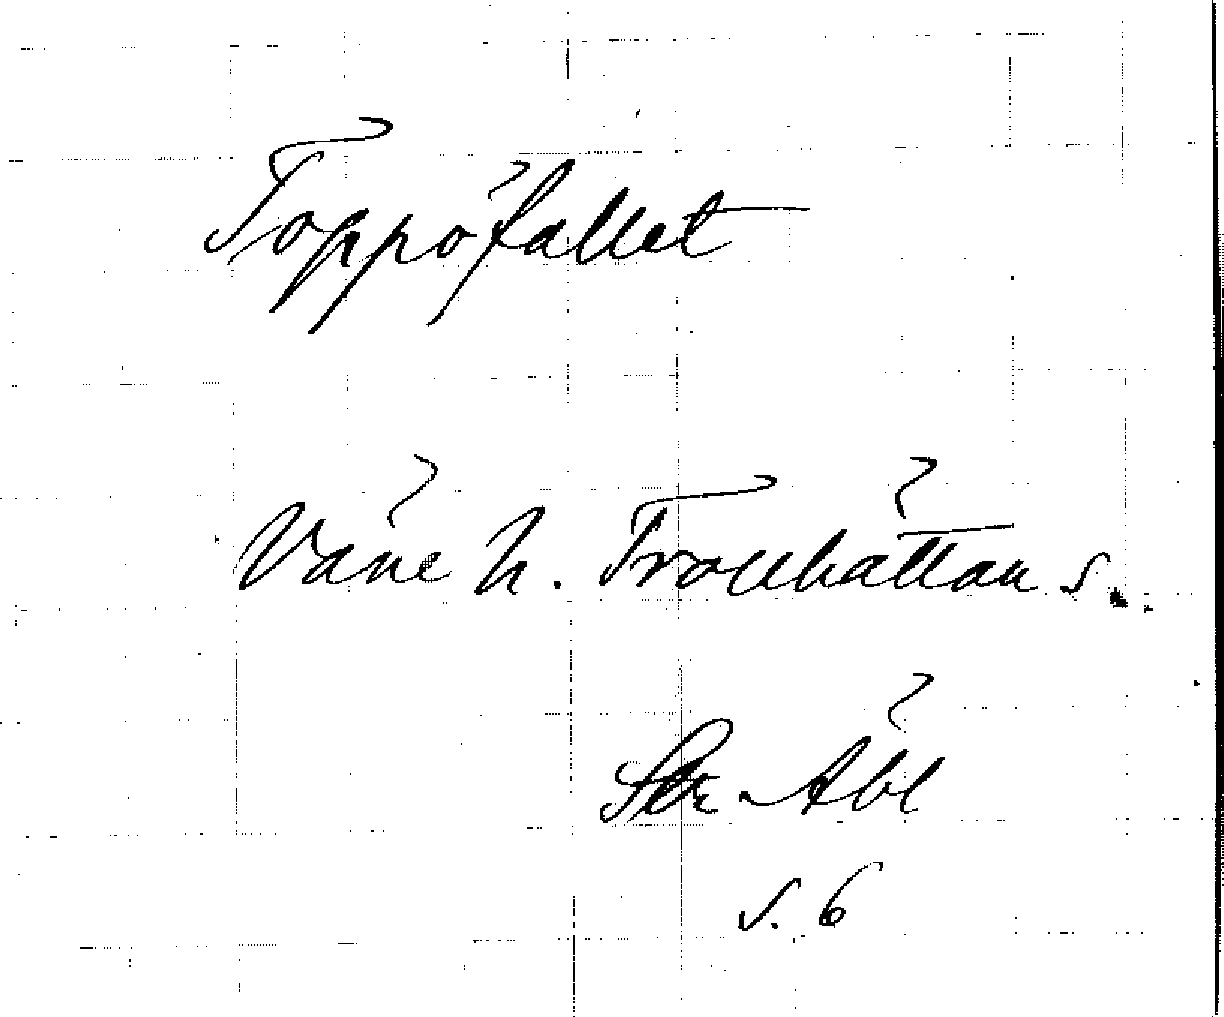 Toppöfallet
Väne h. Trollhättan s.
Åbl
s. 6